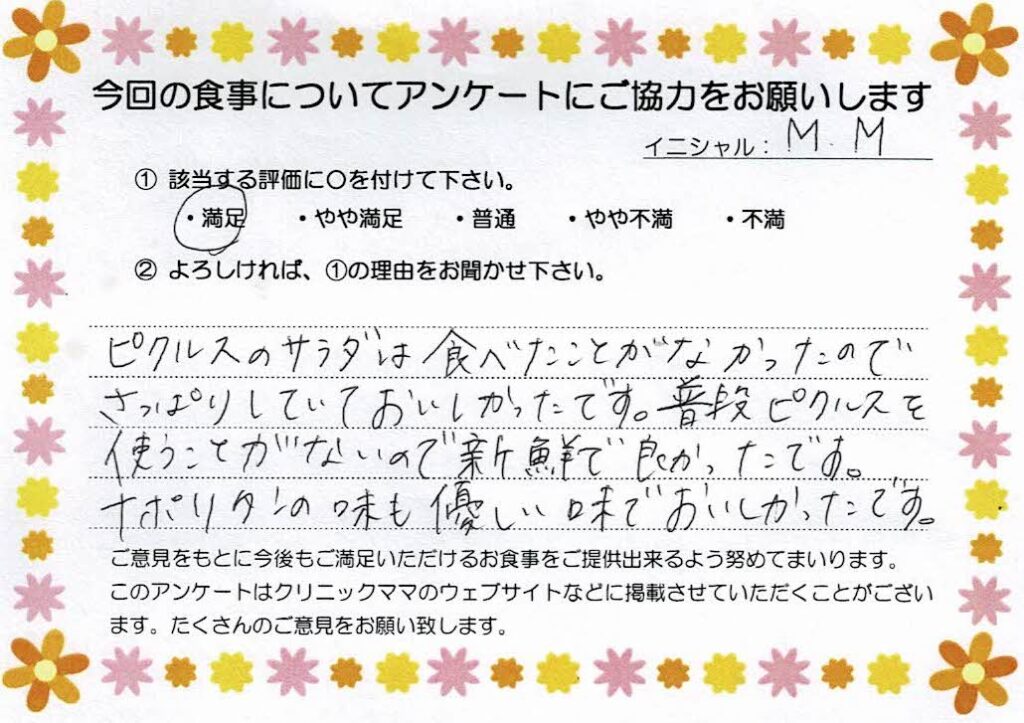 今回の食事についてアンケートにご協力をお願いします
イニシャル：M.M
① 該当する評価に○を付けて下さい。
・満足 ・やや満足 ・普通 ・やや不満 ・不満
② よろしければ、①の理由をお聞かせ下さい。
ピクルスのサラダは食べたことがなかったので
さっぱりしていておいしかったです。普段ピクルスを
使うことがないので新鮮で良かったです。
ナポリタンの味も優しい味でおいしかったです。
ご意見をもとに今後もご満足いただけるお食事をご提供出来るよう努めてまいります。
このアンケートはクリニックママのウェブサイトなどに掲載させていただくことがござい
ます。たくさんのご意見をお願い致します。